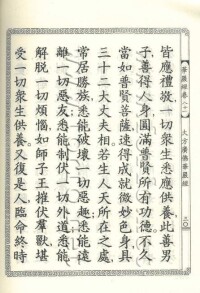 華嚴經卷八一
大方廣佛華嚴經
三〇
皆應禮敬一切衆生悉應供養此善男
子善得人身圓滿普賢所有功德不久
當如普賢菩薩速得成就微妙色身具
三十二大丈夫相若生人天所在之處
常居勝族悉能破壞一切惡趣悉能遠
離一切惡友悉能制伏一切外道悉能
解脫一切煩惱如師子王摧伏群獸堪
受一切衆生供養又復是人臨命終時